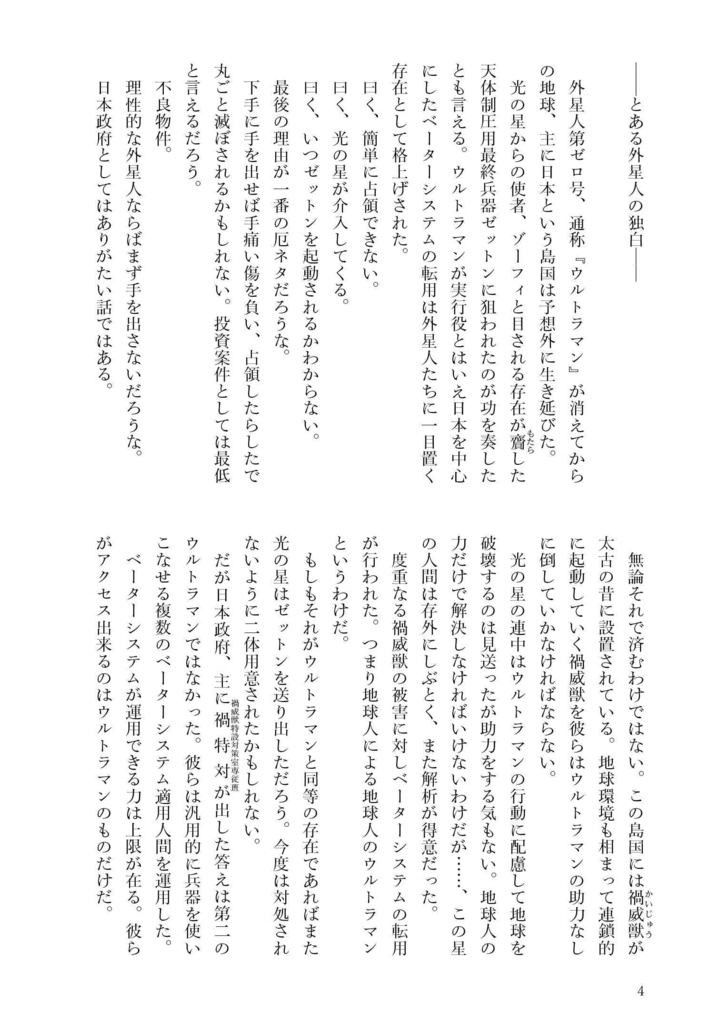 ――とある外星人の独白――
外星人第ゼロ号、通称『ウルトラマン』が消えてから
の地球、主に日本という島国は予想外に生き延びた。
光の星からの使者、ゾーフィと目される存在が齎した
もたら
天体制圧用最終兵器ゼットンに狙われたのが功を奏した
とも言える。ウルトラマンが実行役とはいえ日本を中心
にしたベーターシステムの転用は外星人たちに一目置く
存在として格上げされた。
曰く、簡単に占領できない。
曰く、光の星が介入してくる。
曰く、いつゼットンを起動されるかわからない。
最後の理由が一番の厄ネタだろうな。
下手に手を出せば手痛い傷を負い、占領したらしたで
丸ごと滅ぼされるかもしれない。投資案件としては最低
と言えるだろう。
不良物件。
理性的な外星人ならばまず手を出さないだろうな。
日本政府としてはありがたい話ではある。
無論それで済むわけではない。この島国には禍威獣が
かいじゅう
太古の昔に設置されている。地球環境も相まって連鎖的
に起動していく禍威獣を彼らはウルトラマンの助力なし
に倒していかなければならない。
光の星の連中はウルトラマンの行動に配慮して地球を
破壊するのは見送ったが助力をする気もない。地球人の
力だけで解決しなければいけないわけだが……、この星
の人間は存外にしぶとく、また解析が得意だった。
度重なる禍威獣の被害に対しベーターシステムの転用
が行われた。つまり地球人による地球人のウルトラマン
というわけだ。
もしもそれがウルトラマンと同等の存在であればまた
光の星はゼットンを送り出しただろう。今度は対処され
ないように二体用意されたかもしれない。
だが日本政府、主に禍特対が出した答えは第二の
禍威獣特設対策室専従班
ウルトラマンではなかった。彼らは汎用的に兵器を使い
こなせる複数のベーターシステム適用人間を運用した。
ベーターシステムが運用できる力は上限が在る。彼ら
がアクセス出来るのはウルトラマンのものだけだ。
4